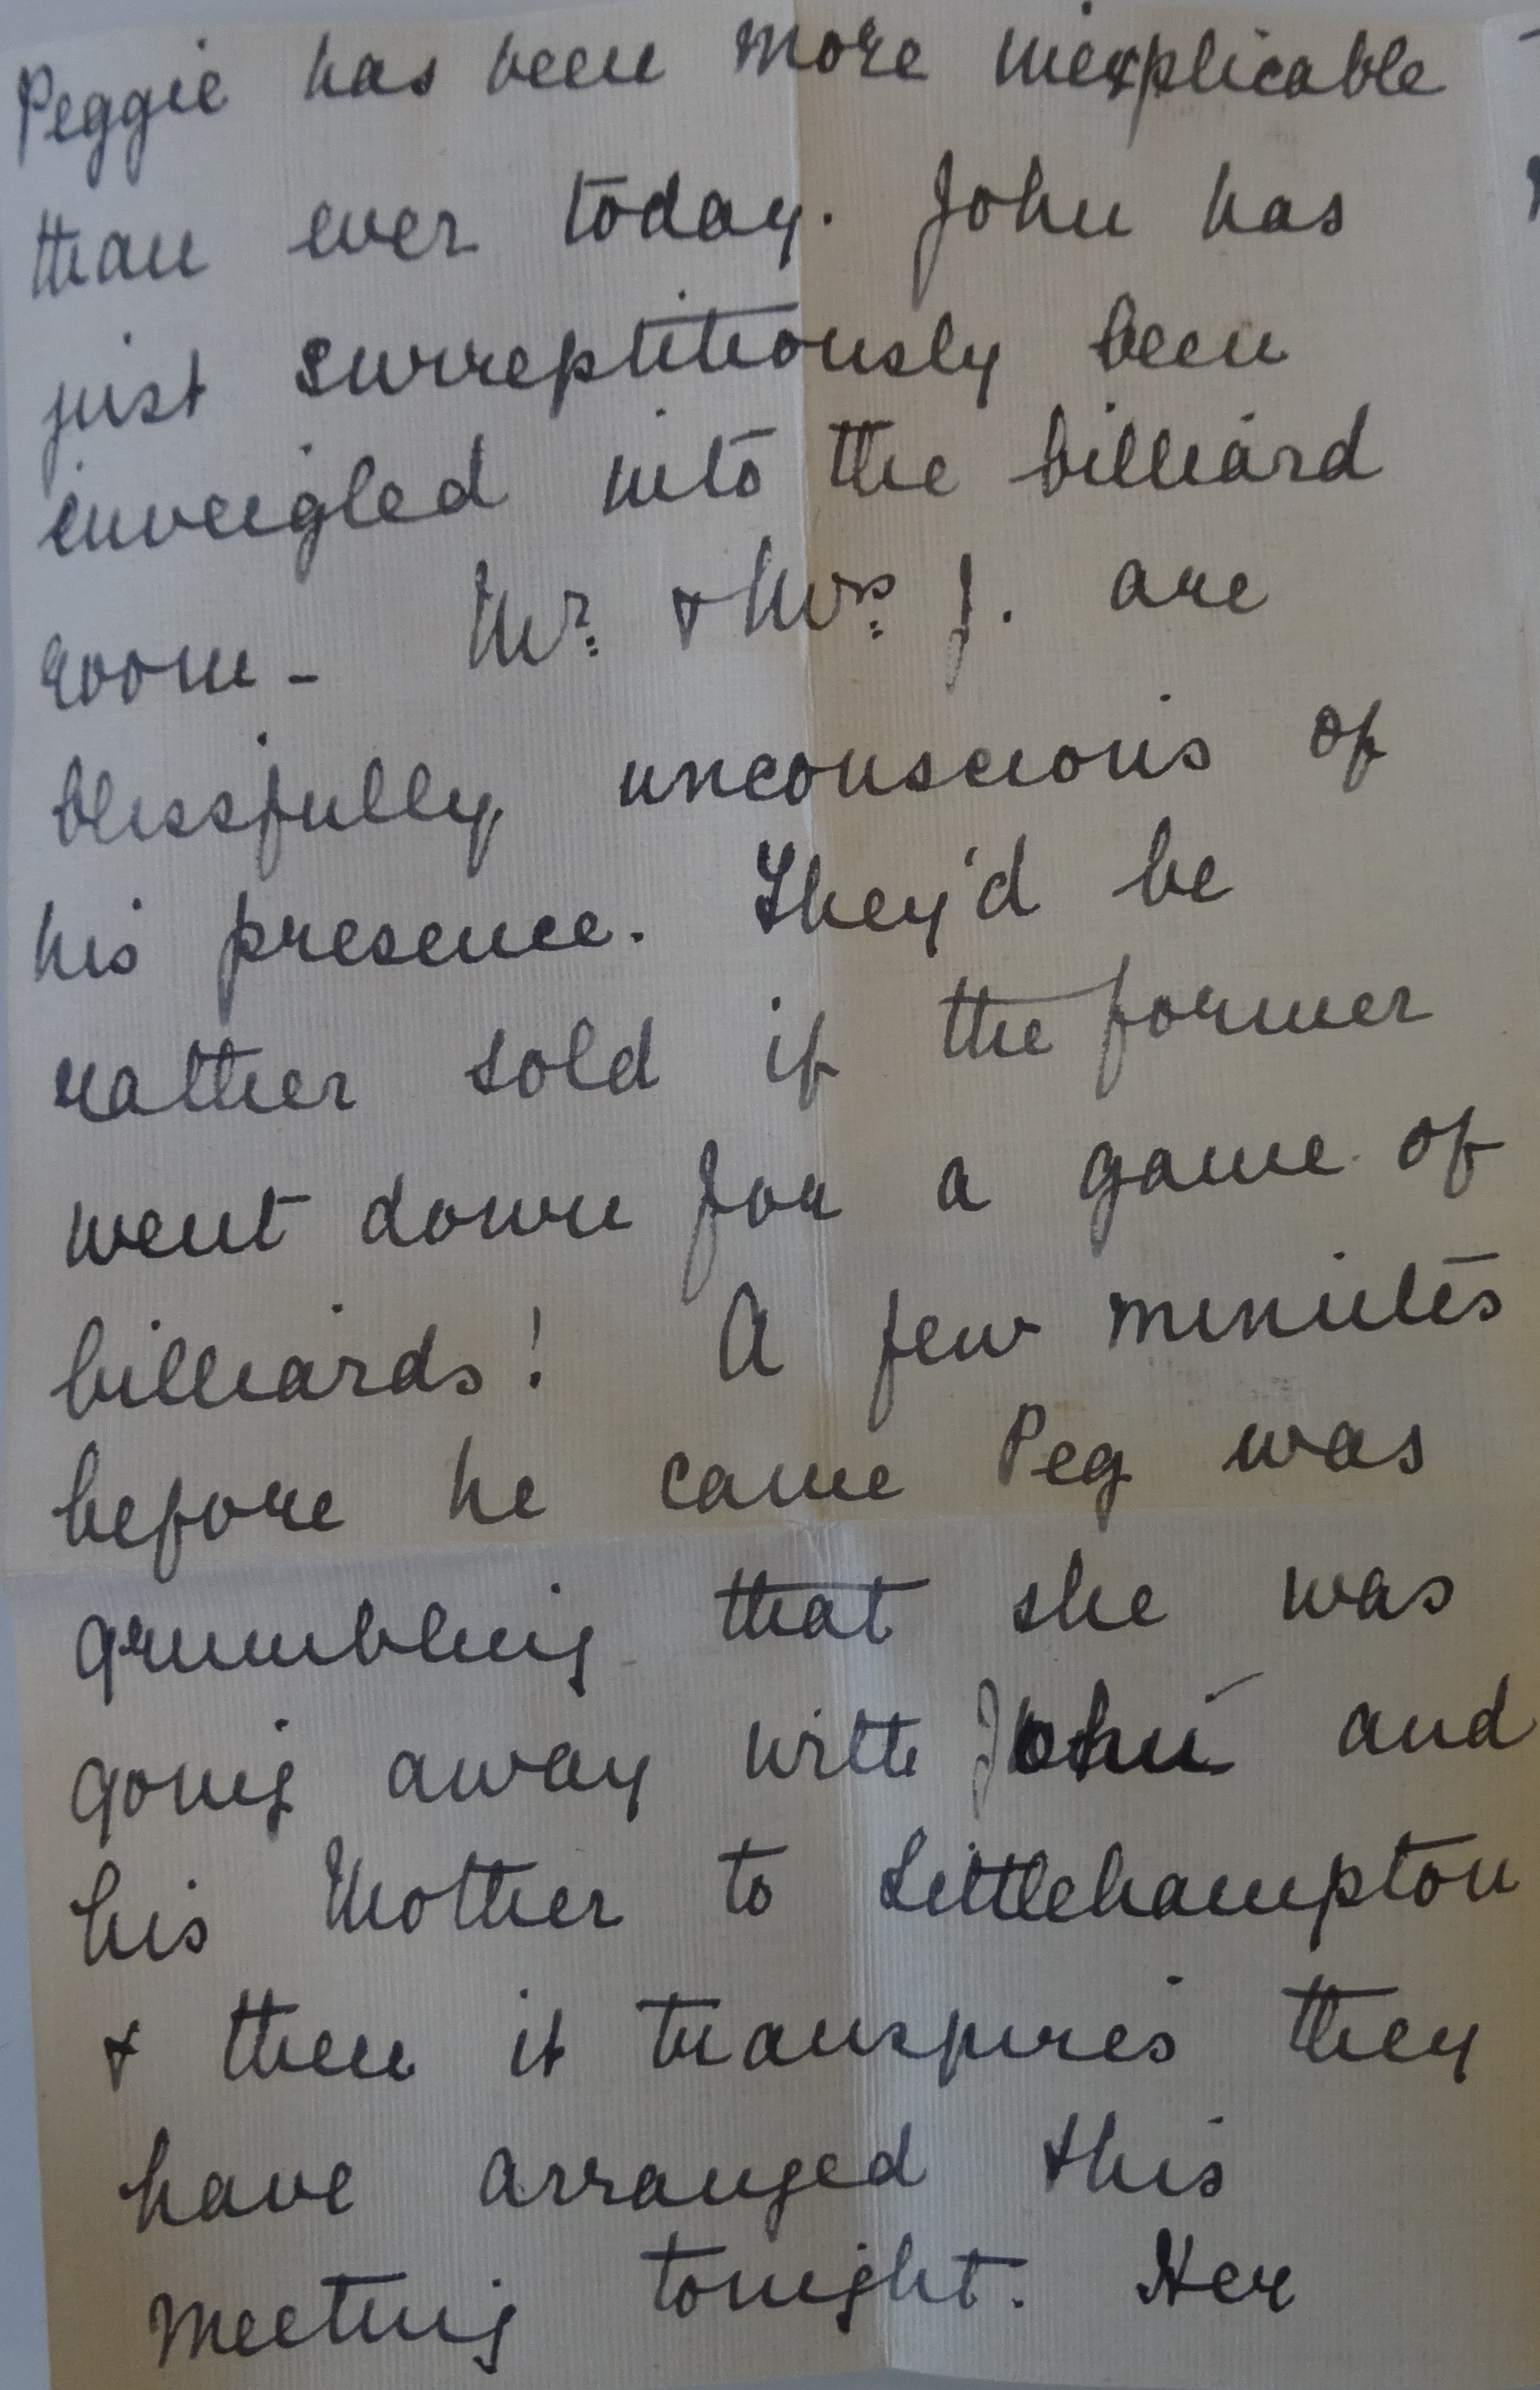 Peggie has been more inexplicable
than ever today. John has
just surreptitiously been
inveigled into the billiard
room - Mr. & Mrs. J. are
blissfully unconscious of
his presence. They'd be
rather sold if the former
went down for a game of
billiards! A few minutes
before he came Peg was
grumbling that she was
going away with John and
his Mother to Littlehampton
& then it transpires they
have arranged this
meeting tonight. Her